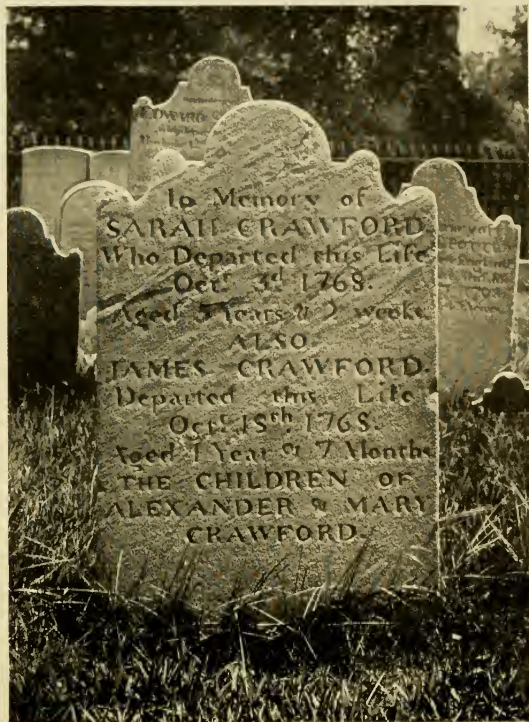 In Memory of
SARAH CRAWFORD
Who Departed this Life
Octr. 3d 1768.
Aged 3 Years & 2 weeks
ALSO
JAMES CRAWFORD.
Departed this Life
Octr. 18th 1768.
Aged 1 Year & 7 Months
THE CHILDREN OF
ALEXANDER & MARY
CRAWFORD.
EDWARD